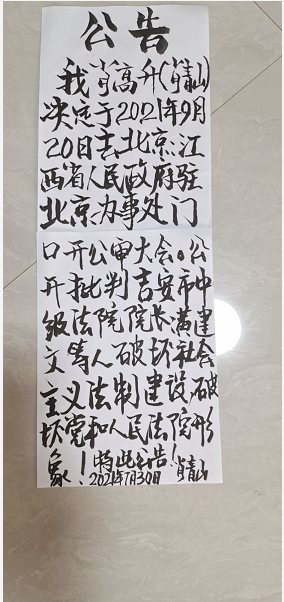 公告
我肖高升(肖青山)
决定于2021年9月
20日去北京:江
西省人民政府驻
北京办事处门
口开公审大会。公
开批判吉安市中
级法院院长满建
文等人破坏社会
主义法制建设,破
坏党和人民法院形
象!特此公告!肖青山
2021年7月30日